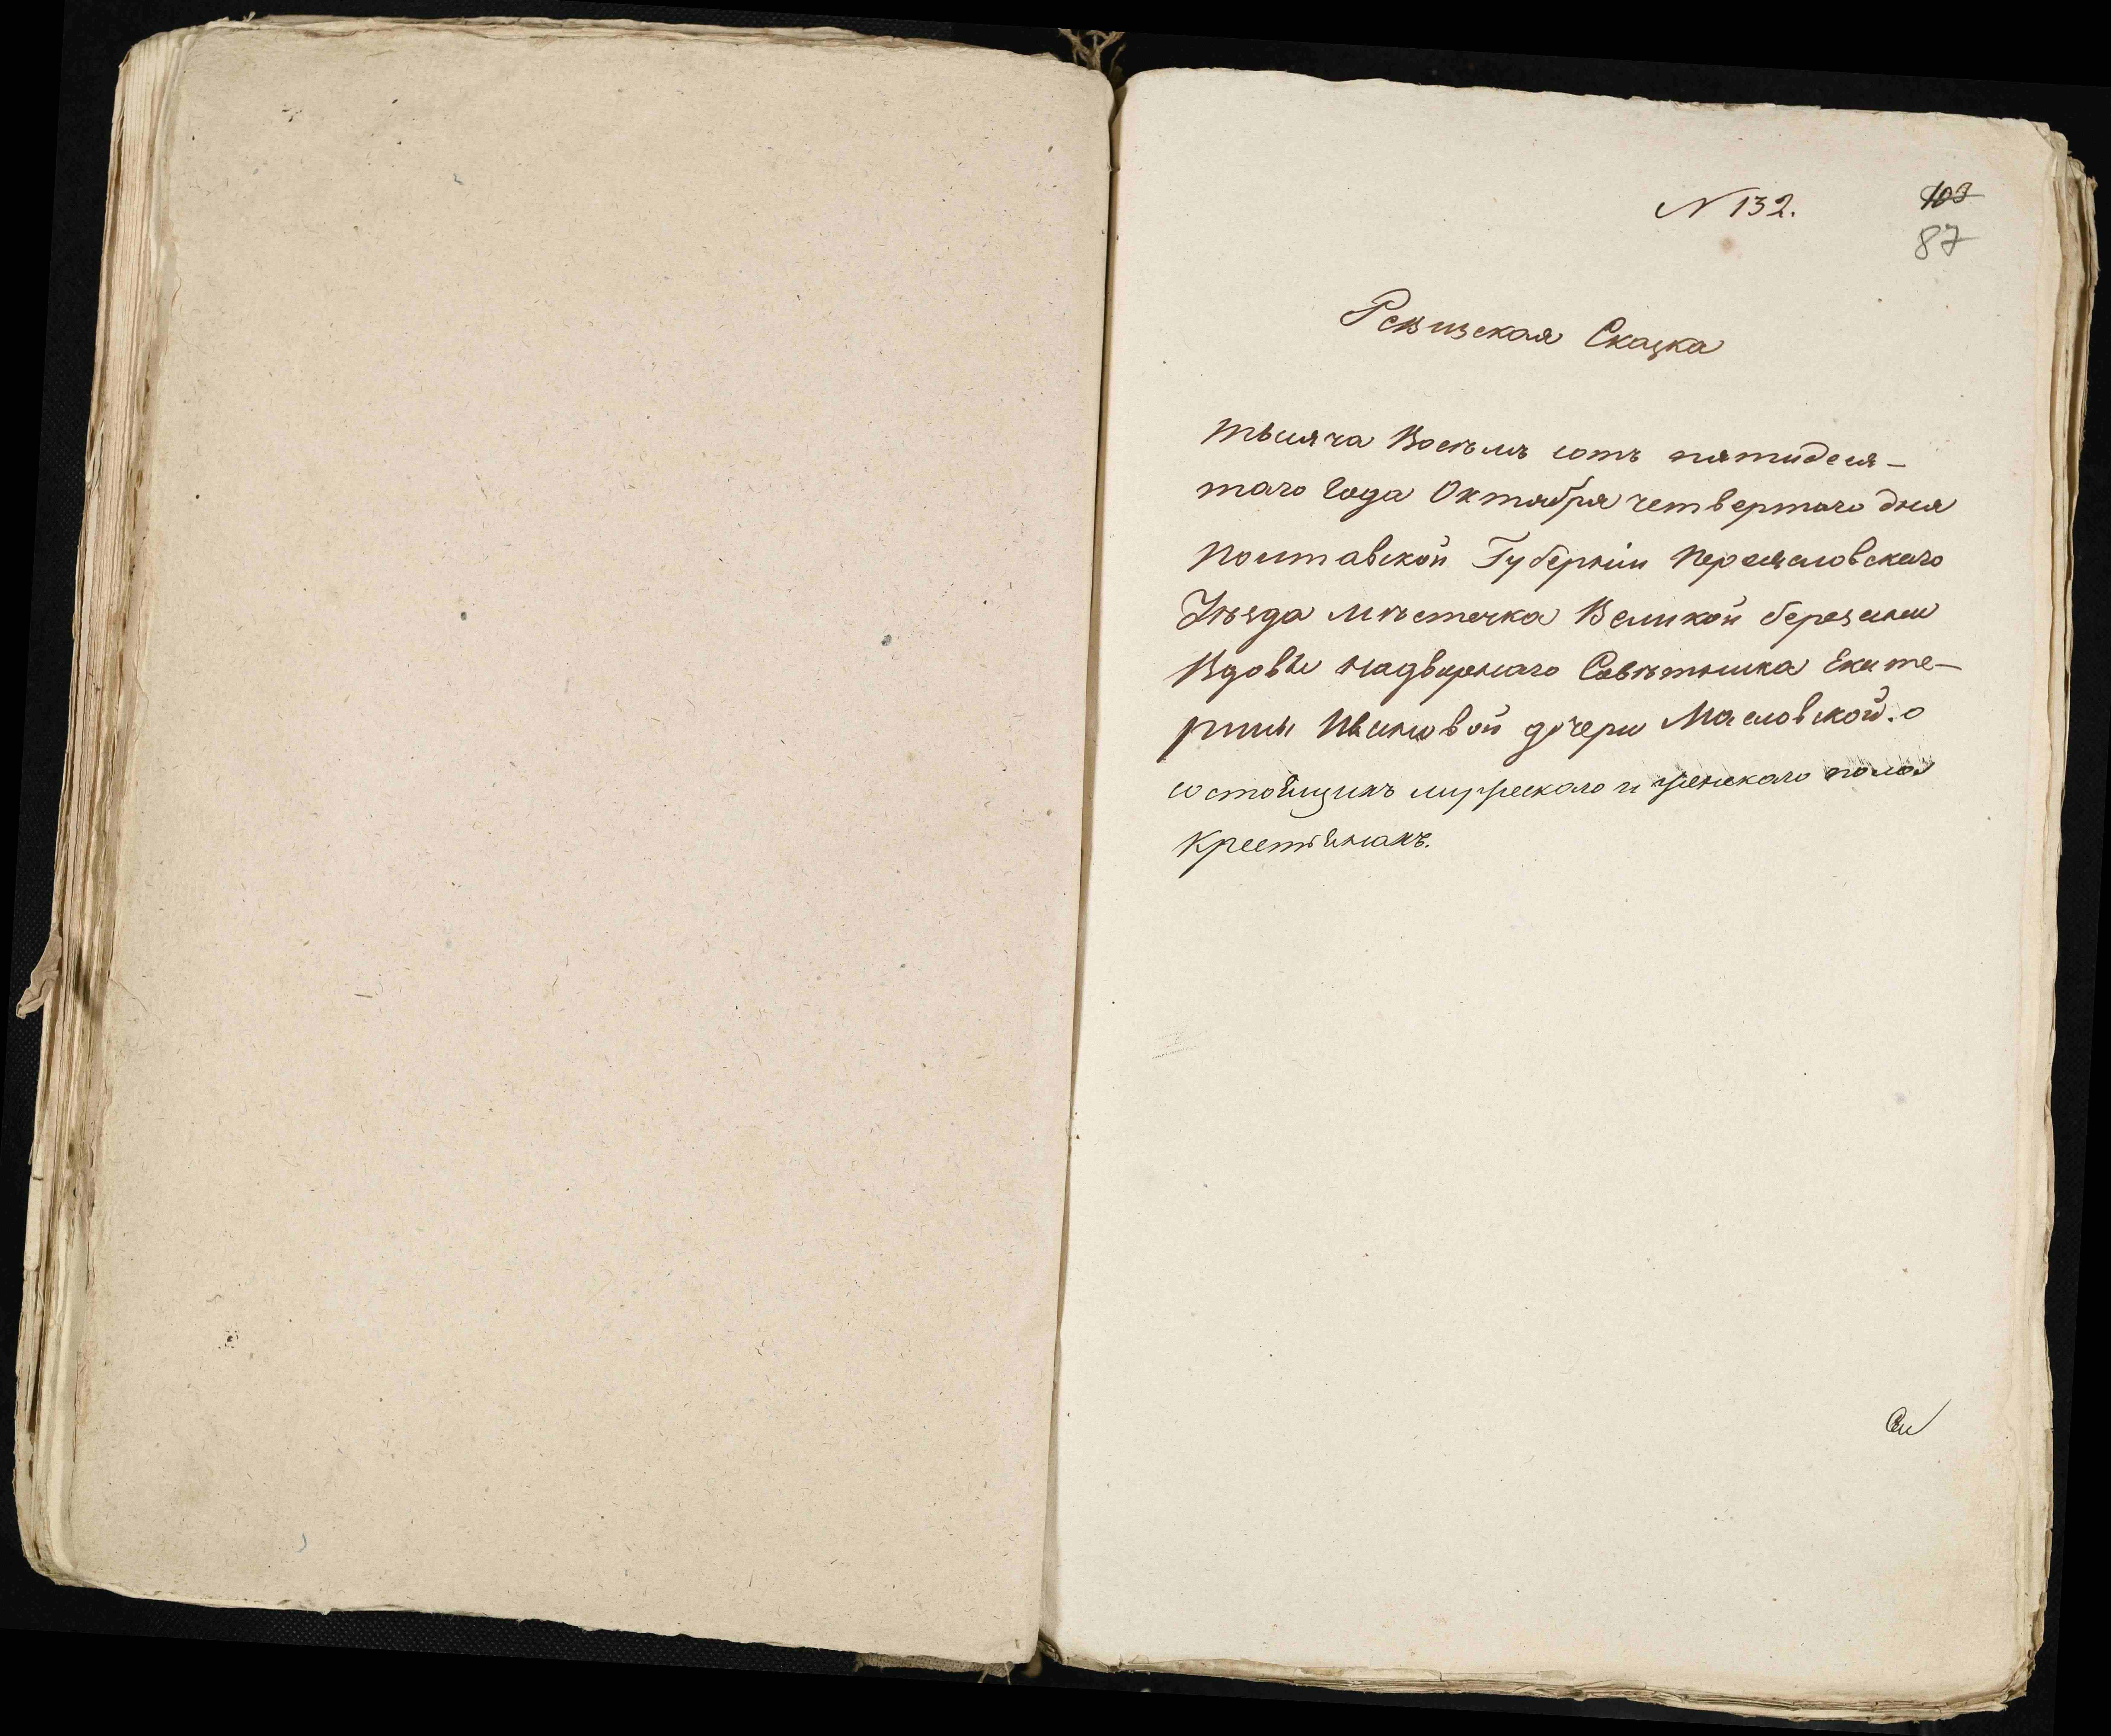 N 132.
103
87
Ревизская Сказка
тысяча Восемь сотъ пятидеся-
таго Года Октября четвертаго дня
Полтавской Губерніи Переясловскаго
Уѣзда мѣстечка Великой березани
Вдовы надворнаго Совѣтника Екате-
рины Ивановой дочери Масловской. о
состоящихъ мужескаго и женскаго пола
Крестьянахъ.